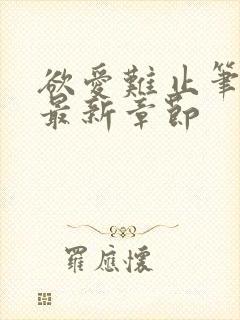 欲愛難止筆
最新章節
羅應懷